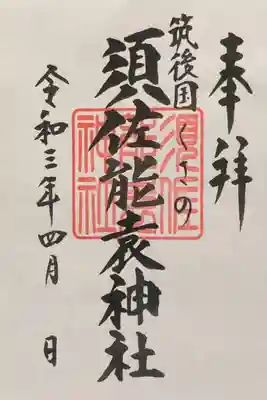 奉拝
筑後国くさの
須佐能袁神社
須佐能袁神社
令和三年四月 日